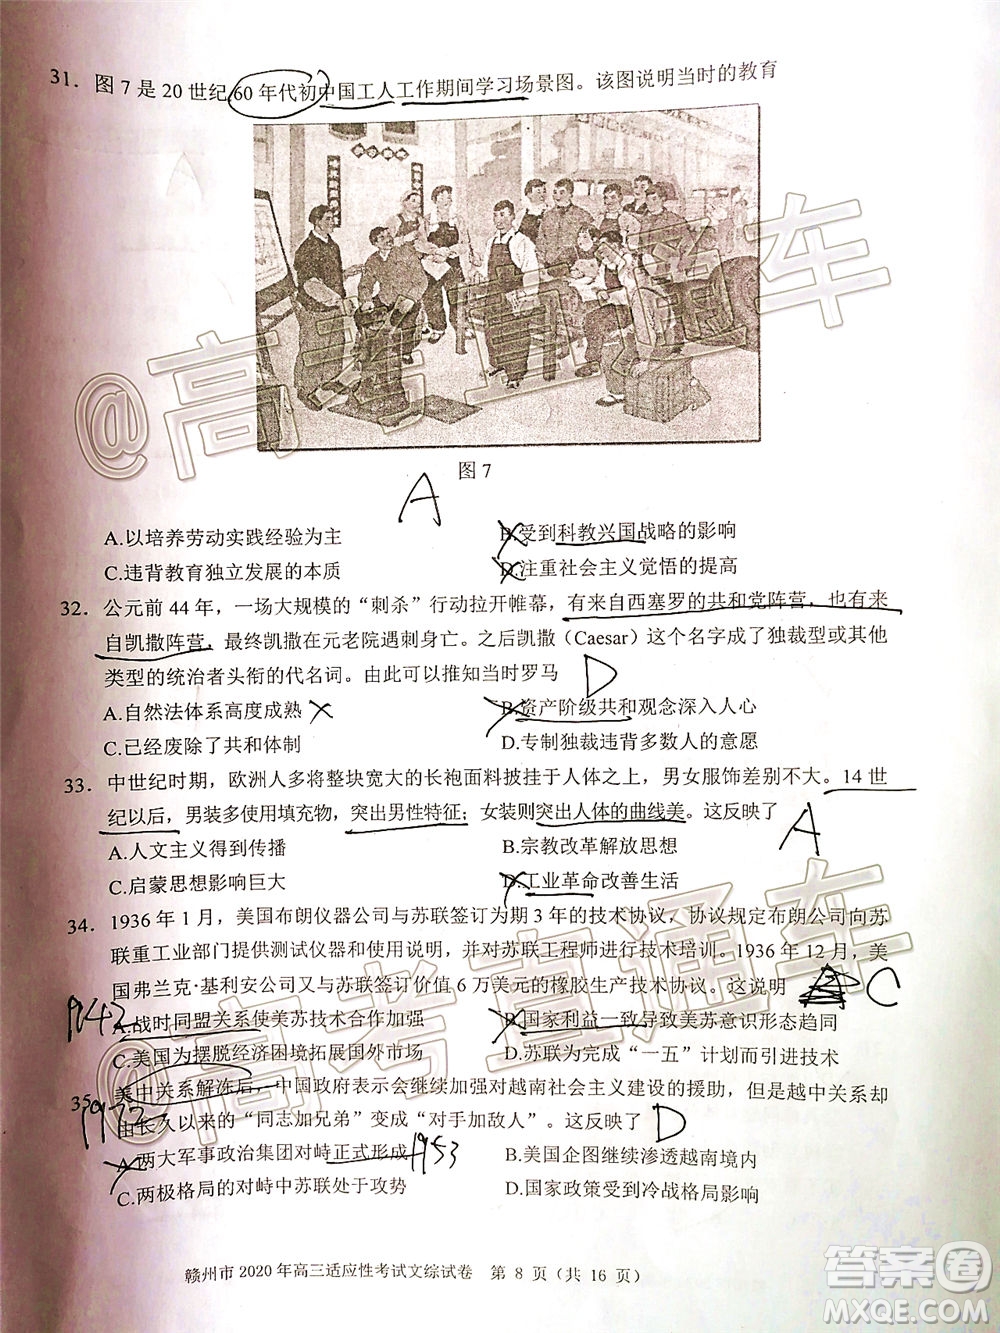 31. 图7是20世纪60年代初中国工人工作期间学习场景图。该图说明当时的教育
图7
A
A.以培养劳动实践经验为主
B.受到科教兴国战略的影响
C.违背教育独立发展的本质
D.注重社会主义觉悟的提高
32. 公元前44年，一场大规模的“刺杀”行动拉开帷幕，有来自西塞罗的共和党阵营，也有来
自凯撒阵营，最终凯撒在元老院遇刺身亡。之后凯撒（Caesar）这个名字成了独裁型或其他
类型的统治者头衔的代名词。由此可以推知当时罗马
D
A.自然法体系高度成熟
B.资产阶级共和观念深入人心
C.已经废除了共和体制
D.专制独裁违背多数人的意愿
33. 中世纪时期，欧洲人多将整块宽大的长袍面料披挂于人体之上，男女服饰差别不大。14世
纪以后，男装多使用填充物，突出男性特征；女装则突出人体的曲线美。这反映了
A
A.人文主义得到传播
B.宗教改革解放思想
C.启蒙思想影响巨大
D.工业革命改善生活
34. 1936年1月，美国布朗仪器公司与苏联签订为期3年的技术协议，协议规定布朗公司向苏
联重工业部门提供测试仪器和使用说明，并对苏联工程师进行技术培训。1936年12月，美
国弗兰克·基利安公司又与苏联签订价值6万美元的橡胶生产技术协议。这说明
C
1942
A.战时同盟关系使美苏技术合作加强
B.国家利益一致导致美苏意识形态趋同
C.美国为摆脱经济困境拓展国外市场
D.苏联为完成“一五”计划而引进技术
35. 美中关系解冻后，中国政府表示会继续加强对越南社会主义建设的援助，但是越中关系却
1972
由长久以来的“同志加兄弟”变成“对手加敌人”。这反映了
D
A.两大军事政治集团对峙正式形成
1953
B.美国企图继续渗透越南境内
C.两极格局的对峙中苏联处于攻势
D.国家政策受到冷战格局影响
赣州市2020年高三适应性考试文综试卷 第 8 页（共 16 页）
@高考直通车
@高考直通车
答案圈
MXQE.COM